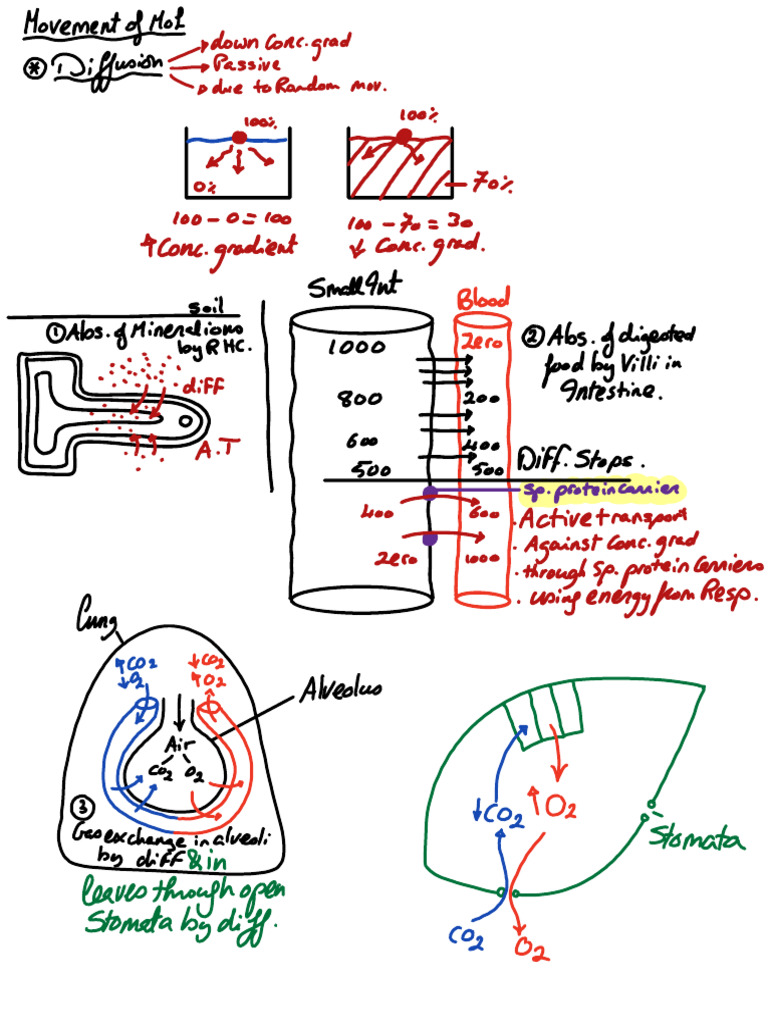 Movement of Mol
* Diffusion
down Conc. grad
Passive
due to Random mov.
100%
0%
100 - 0 = 100
↑ Conc. gradient
100%
70%
100 - 70 = 30
↓ Conc. grad.
soil
① Abs. of Mineral ions
by RHC.
diff
A.T
Small Int
Blood
1000
Zero
800
200
600
400
500
500
② Abs. of digested
food by Villi in
Intestine.
Diff. Stops.
Sp. protein Carrier
400
600
Zero
1000
. Active transport
. Against conc. grad
. through Sp. protein Carriers
. using energy from Resp.
Lung
↑ CO2
↓ O2
↓ CO2
↑ O2
Alveolus
Air
CO2 O2
③
Gas exchange in alveoli
by diff & in
leaves through open
Stomata by diff.
↓ CO2
↑ O2
Stomata
CO2
O2